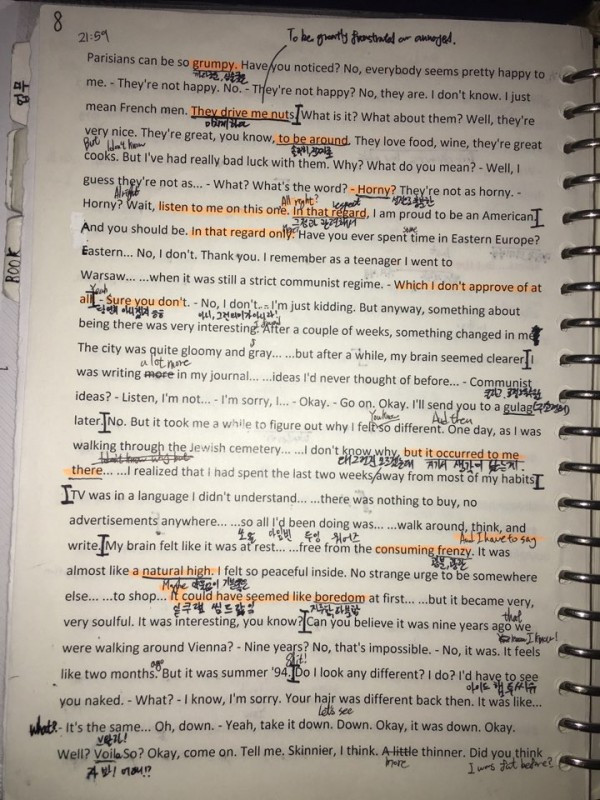 8
21:59
To be greatly frustrated or annoyed.
Parisians can be so grumpy. Have you noticed? No, everybody seems pretty happy to
me. - They're not happy. No. - They're not happy? No, they are. I don't know. I just
mean French men. They drive me nuts. What is it? What about them? Well, they're
very nice. They're great, you know, to be around. They love food, wine, they're great
But I don't know
cooks. But I've had really bad luck with them. Why? What do you mean? - Well, I
guess they're not as... - What? What's the word? - Horny? They're not as horny. -
Alright
All right?
respect
Horny? Wait, listen to me on this one. In that regard, I am proud to be an American.
And you should be. In that regard only. Have you ever spent time in Eastern Europe?
some
Eastern... No, I don't. Thank you. I remember as a teenager I went to
Warsaw... ...when it was still a strict communist regime. - Which I don't approve of at
Yeah
all. - Sure you don't. - No, I don't. - I'm just kidding. But anyway, something about
being there was very interesting. After a couple of weeks, something changed in me.
The city was quite gloomy and gray... ...but after a while, my brain seemed clearer. I
a lot more
was writing more in my journal... ...ideas I'd never thought of before... - Communist
ideas? - Listen, I'm not... - I'm sorry, I... - Okay. - Go on. Okay. I'll send you to a gulag
You know
And then
later. No. But it took me a while to figure out why I felt so different. One day, as I was
walking through the Jewish cemetery... ...I don't know why, but it occurred to me
there... ...I realized that I had spent the last two weeks away from most of my habits.
TV was in a language I didn't understand... ...there was nothing to buy, no
advertisements anywhere... ...so all I'd been doing was... ...walk around, think, and
And I have to say
write. My brain felt like it was at rest... ...free from the consuming frenzy. It was
almost like a natural high. I felt so peaceful inside. No strange urge to be somewhere
Maybe
else... ...to shop... It could have seemed like boredom at first... ...but it became very,
that
very soulful. It was interesting, you know? Can you believe it was nine years ago we
I know!
were walking around Vienna? - Nine years? No, that's impossible. - No, it was. It feels
ago
like two months. But it was summer '94. Do I look any different? I do? I'd have to see
you naked. - What? - I know, I'm sorry. Your hair was different back then. It was like...
let's see
what?
- It's the same... Oh, down. - Yeah, take it down. Down. Okay, it was down. Okay.
Well? Voila So? Okay, come on. Tell me. Skinnier, I think. A little thinner. Did you think
more
I was fat before?